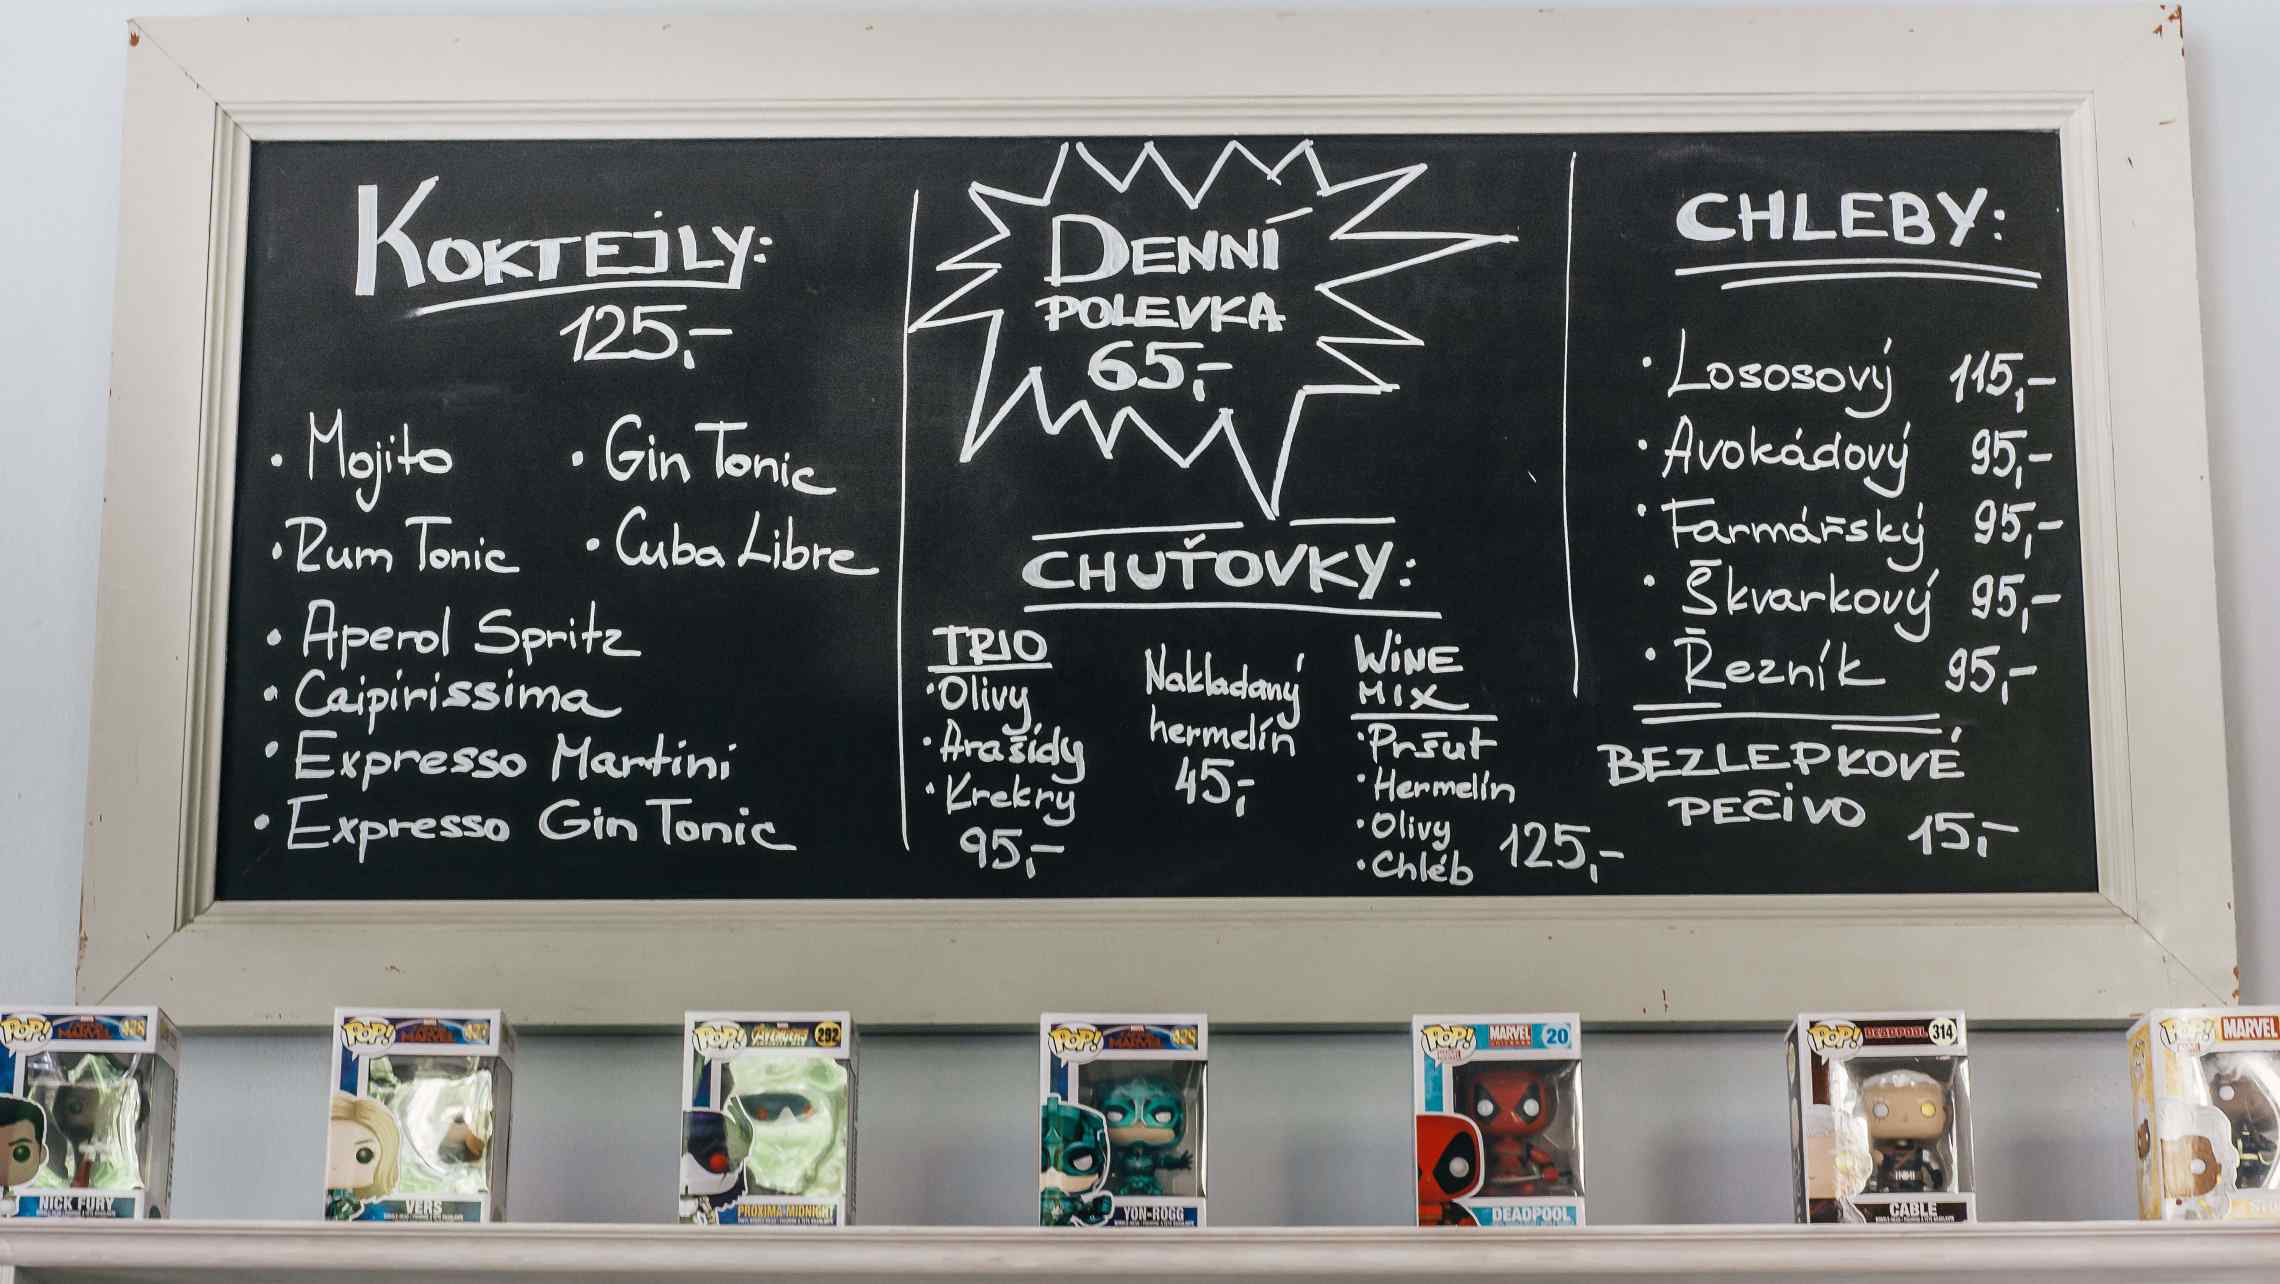 KOKTEJLY:
125,-
· Mojito
· Gin Tonic
· Rum Tonic
· Cuba Libre
· Aperol Spritz
· Caipirissima
· Expresso Martini
· Expresso Gin Tonic
DENNÍ
POLEVKA
65,-
CHUŤOVKY:
TRIO
· Olivy
· Arašídy
· Krekry
95,-
Nakladaný
hermelín
45,-
WINE
MIX
· Pršut
· Hermelín
· Olivy
· Chléb
125,-
CHLEBY:
· Lososový 115,-
· Avokádový 95,-
· Farmářský 95,-
· Škvarkový 95,-
· Řezník 95,-
BEZLEPKOVÉ
PEČIVO
15,-
POP!
MARVEL
NICK FURY
POP!
MARVEL
VERS
POP!
AVENGERS
292
PROXIMA MIDNIGHT
POP!
MARVEL
YON-ROGG
POP!
MARVEL
20
DEADPOOL
POP!
DEADPOOL
314
CABLE
POP!
MARVEL